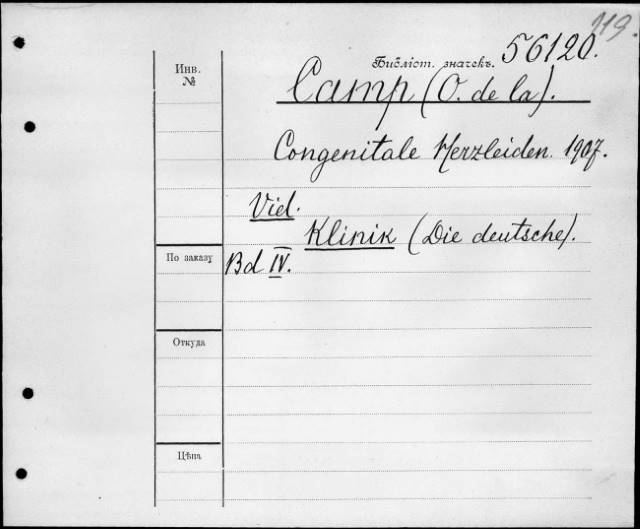 119.
Библіот. значекъ. 56120.
Инв.
№
Camp (O. de la).
Congenitale Herzleiden. 1907.
Vid.
Klinik (Die deutsche).
По заказу
Bd IV.
Откуда
Цѣна